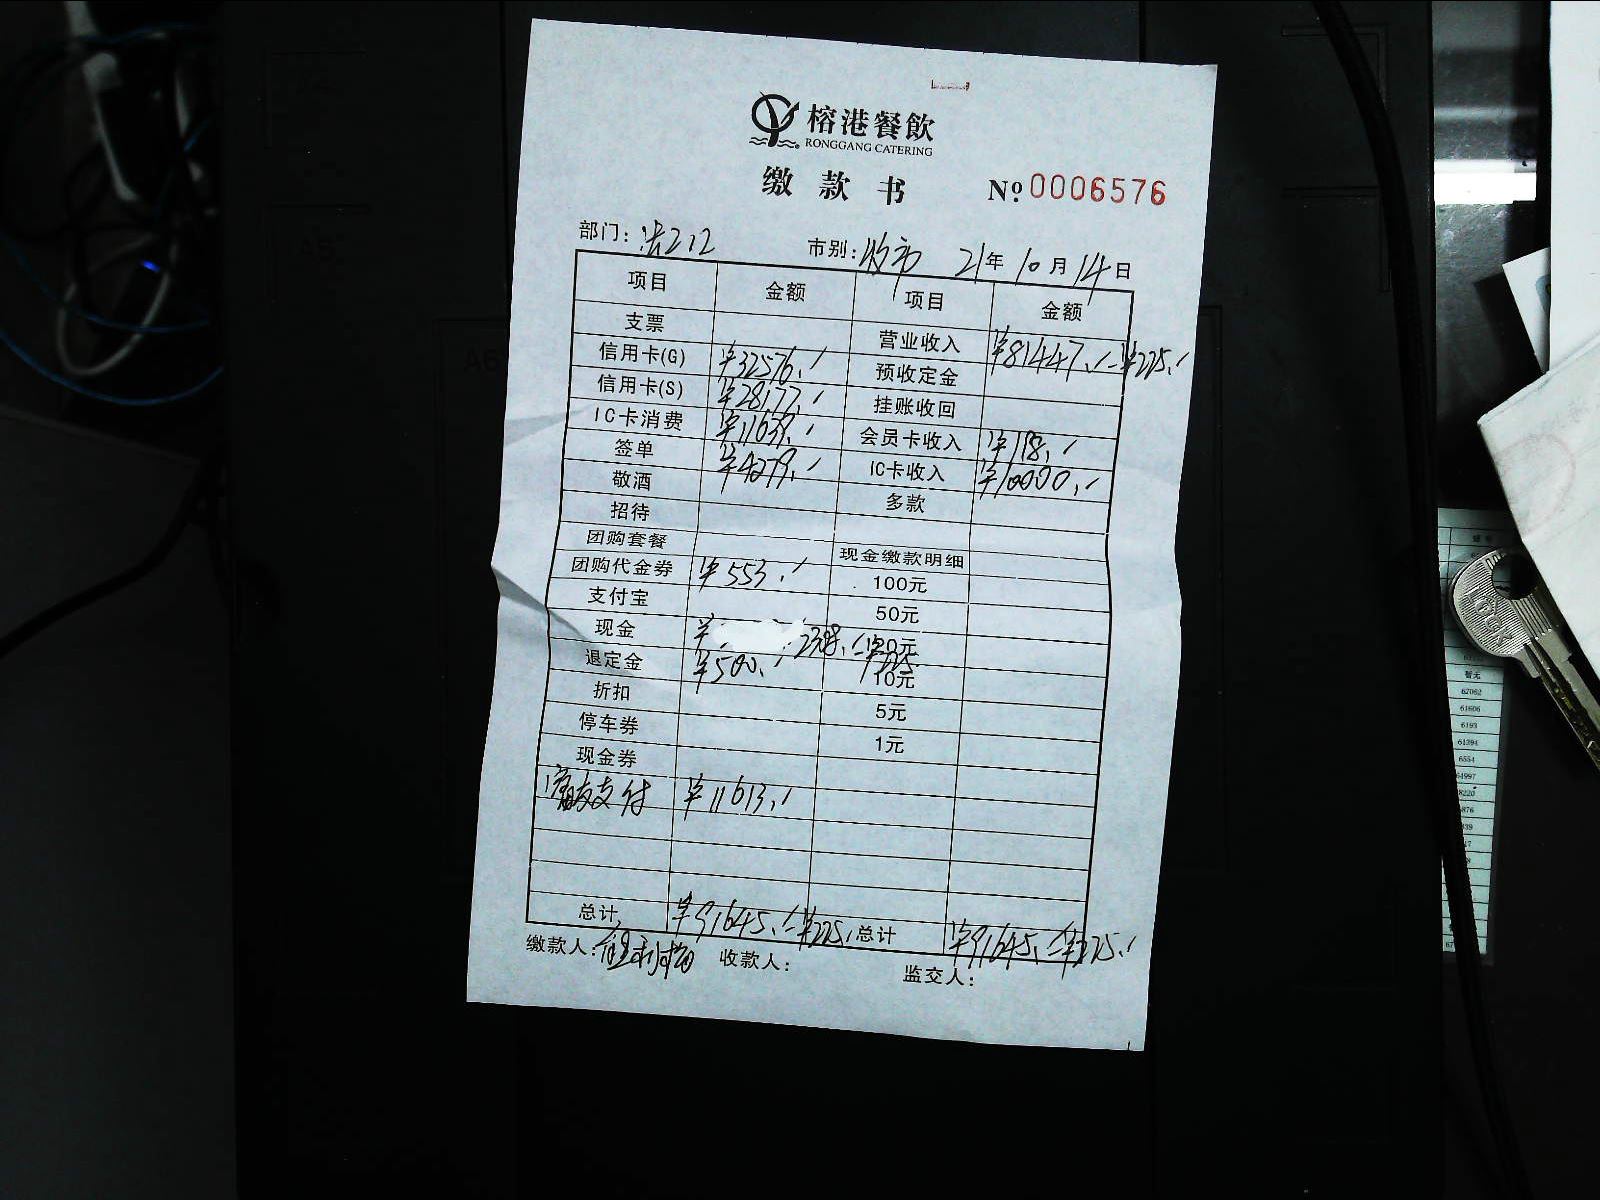 榕港餐飲
RONGGANG CATERING
缴款书 № 0006576
部门: 市别: 21年10月14日
项目 金额 项目 金额
支票 营业收入 ¥81447.-¥225.
信用卡(G) ¥32576. 预收定金
信用卡(S) ¥28177. 挂账收回
IC卡消费 ¥11639. 会员卡收入 ¥198.
签单 ¥4279. IC卡收入 ¥10000.
敬酒 多款
招待
团购套餐 现金缴款明细
团购代金券 ¥553. 100元
支付宝 50元
现金 ¥ 2308.-¥225 20元
退定金 ¥500. 10元
折扣 5元
停车券 1元
现金券
支付 ¥11613.
总计 ¥91645.-¥225. 总计 ¥91645.-¥225.
缴款人: 收款人: 监交人: